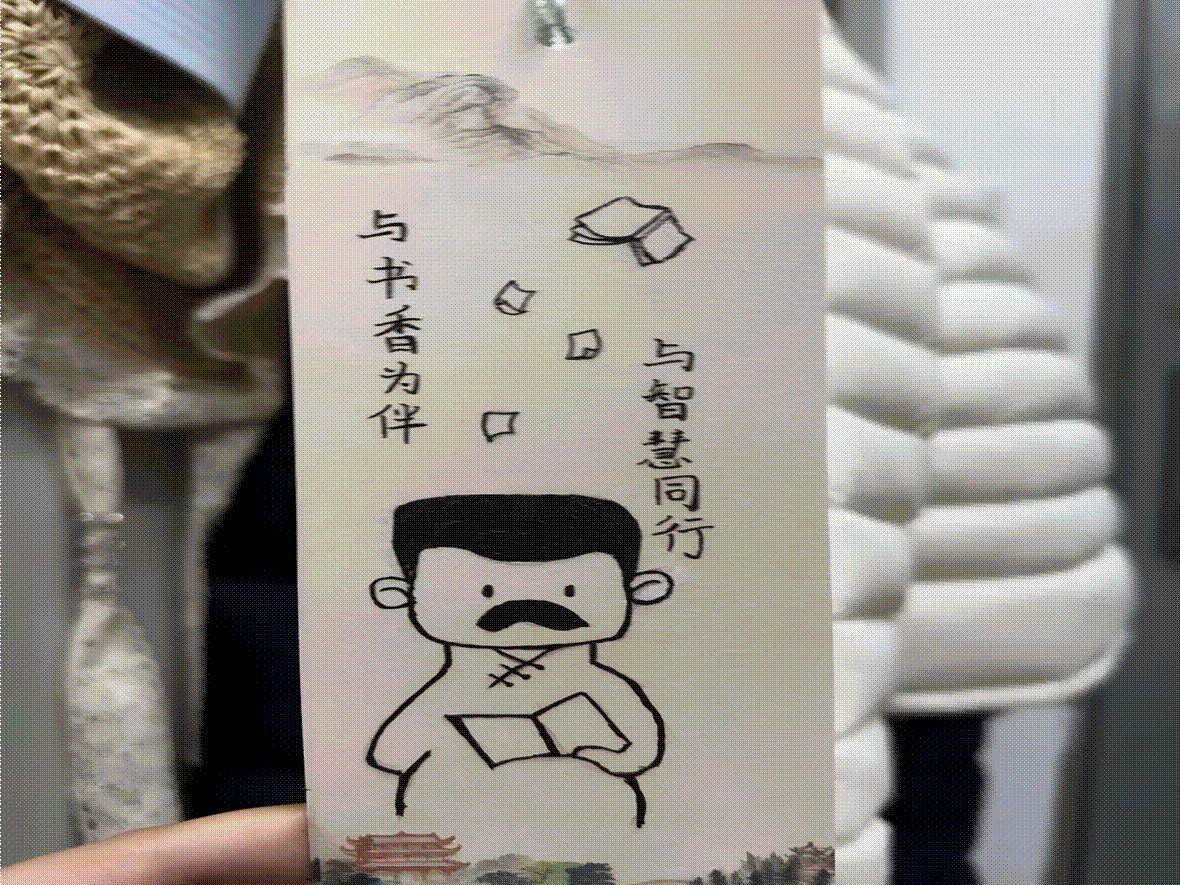 与书香为伴
与智慧同行